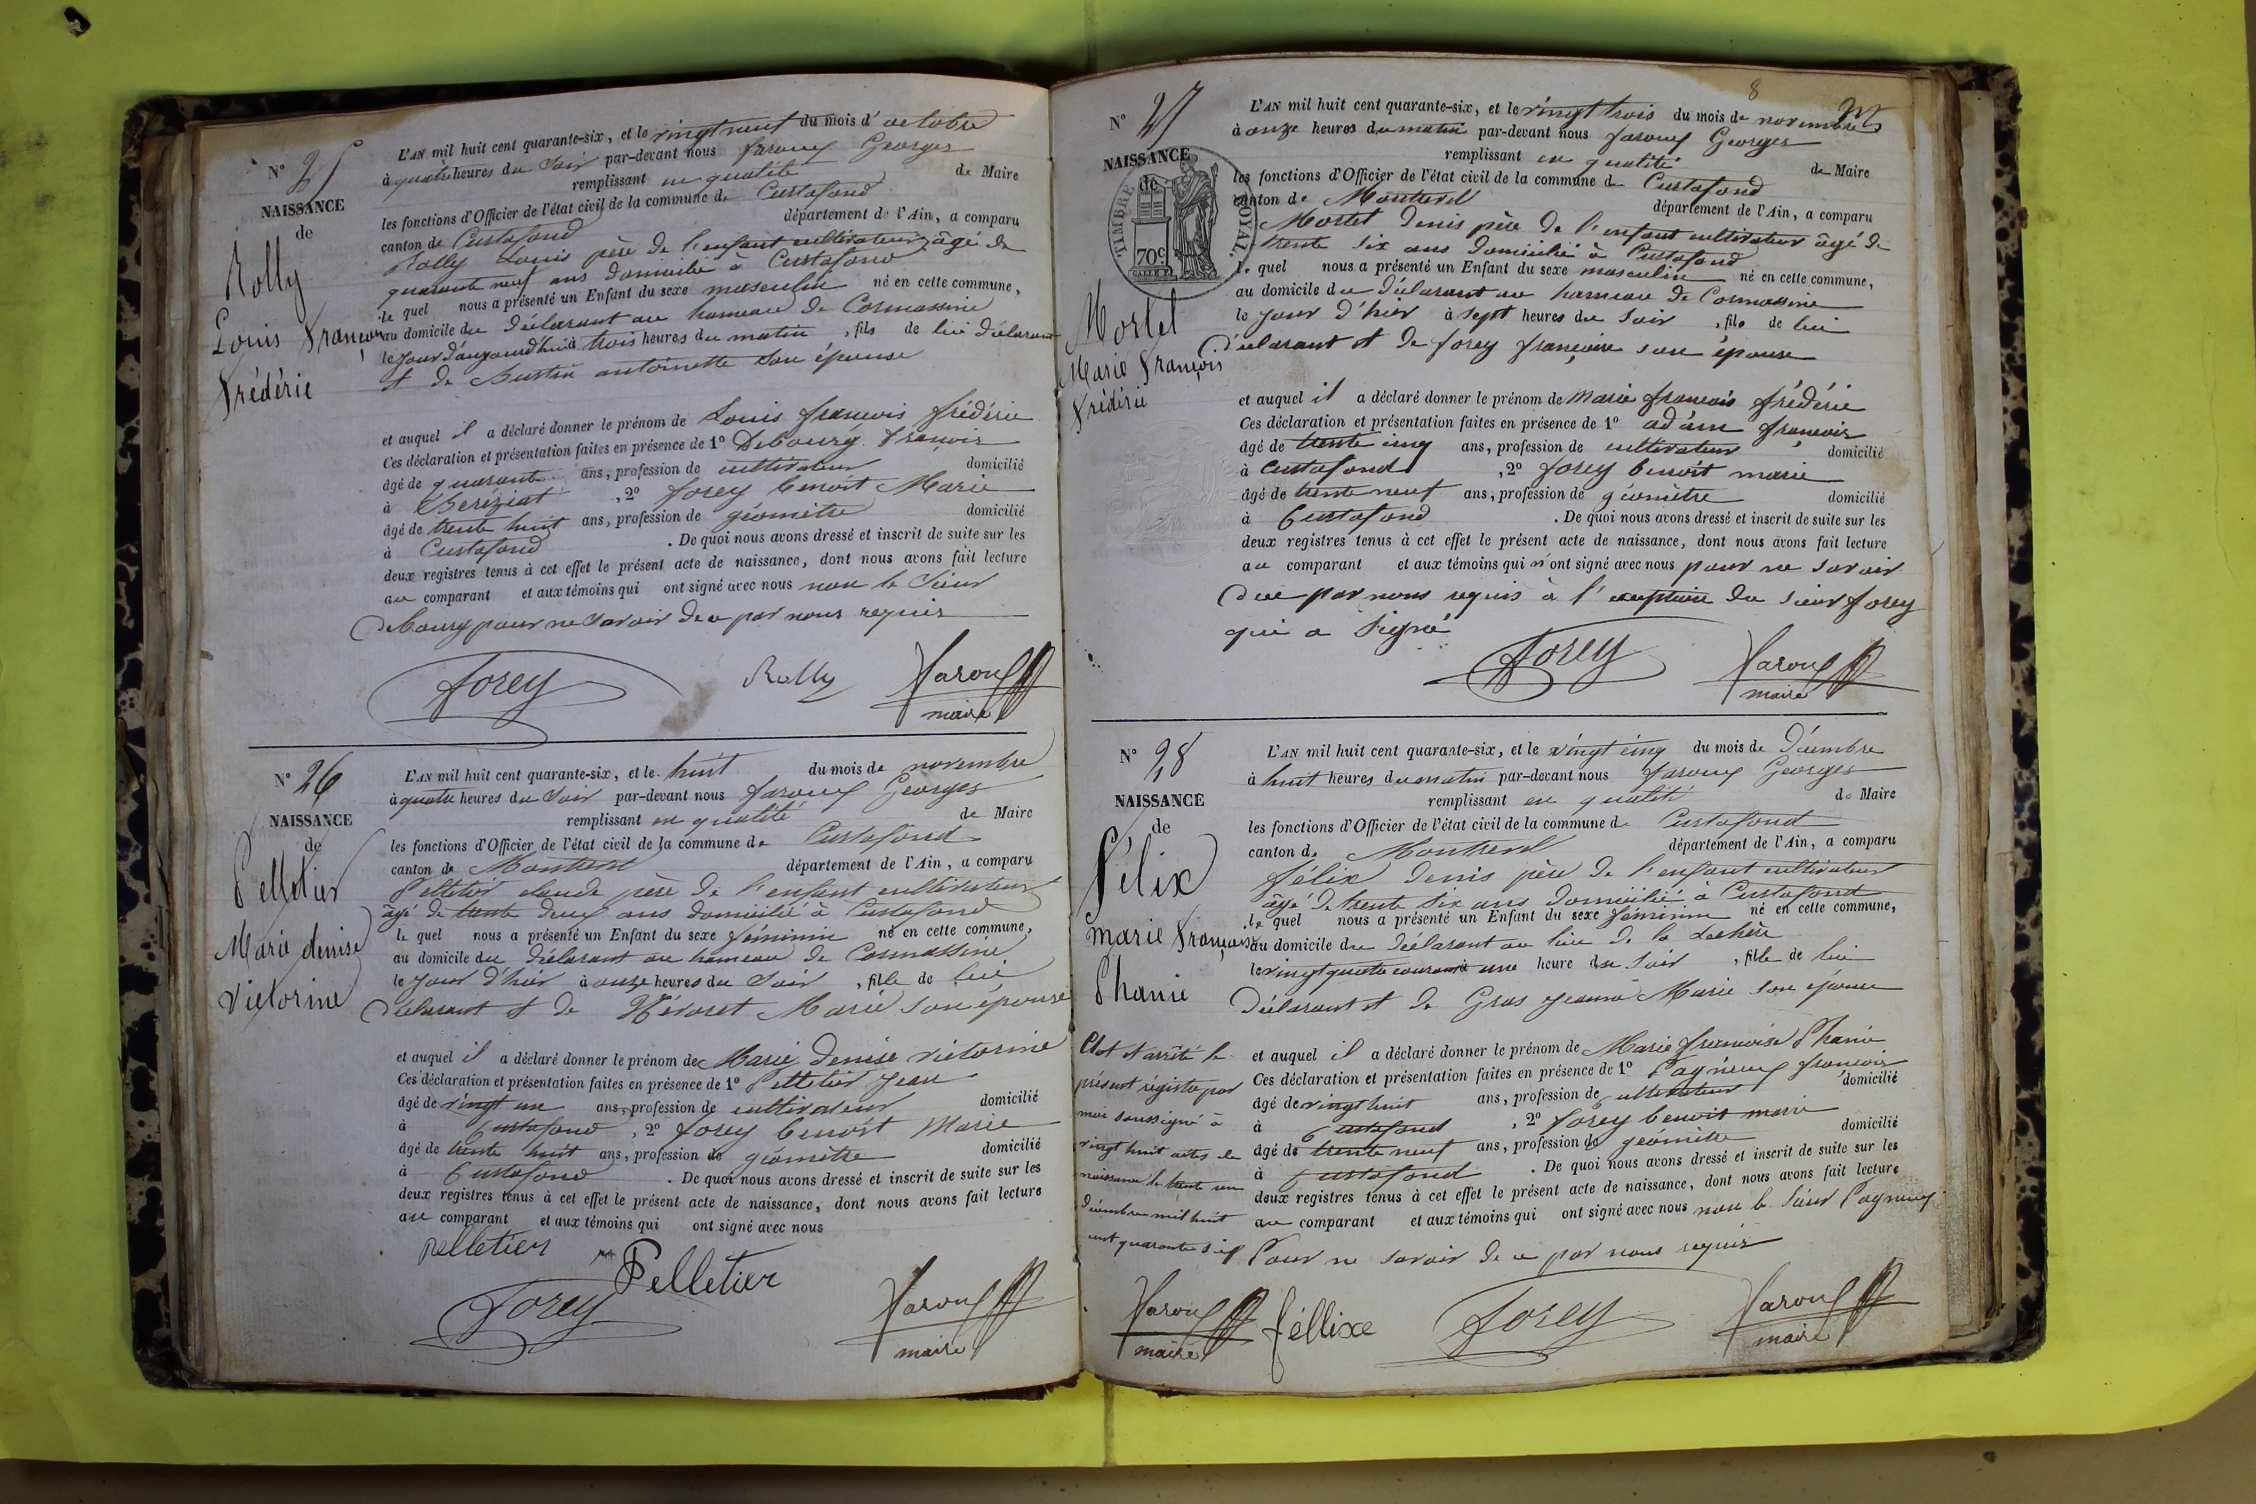 N° 25
NAISSANCE
de
Rolly
Louis François
Frédéric
L'AN mil huit cent quarante-six, et le vingt neuf du mois d'octobre
à quatre heures du soir par-devant nous Faroux Georges
remplissant en qualité de Maire
les fonctions d'Officier de l'état civil de la commune de Curtafond
canton de Curtafond département de l'Ain, a comparu
Rolly Louis père de l'enfant cultivateur âgé de
quarante neuf ans domicilié à Curtafond
le quel nous a présenté un Enfant du sexe masculin né en cette commune,
au domicile du déclarant au hameau de Cormassine
le jour d'aujourd'hui à trois heures du matin, fils de lui déclarant
et de Bustin antoinette son épouse
et auquel il a déclaré donner le prénom de Louis françois frédéric
Ces déclaration et présentation faites en présence de 1° Debourg françois
âgé de quarante ans, profession de cultivateur domicilié
à Béréziat, 2° forey benoit Marie
âgé de trente huit ans, profession de géomètre domicilié
à Curtafond. De quoi nous avons dressé et inscrit de suite sur les
deux registres tenus à cet effet le présent acte de naissance, dont nous avons fait lecture
au comparant et aux témoins qui ont signé avec nous non le Sieur
debourg pour ne savoir de ce par nous requis
Forey Rolly Faroux
maire
N° 26
NAISSANCE
de
Pelletier
Marie denise
Victorine
L'AN mil huit cent quarante-six, et le huit du mois de novembre
à quatre heures du soir par-devant nous Faroux Georges
remplissant en qualité de Maire
les fonctions d'Officier de l'état civil de la commune de Curtafond
canton de Montrevel département de l'Ain, a comparu
Pelletier claude père de l'enfant cultivateur
âgé de trente deux ans domicilié à Curtafond
le quel nous a présenté un Enfant du sexe féminin né en cette commune,
au domicile du déclarant au hameau de Cormassine
le jour d'hier à onze heures du soir, fille de lui
déclarant et de Névoret Marie son épouse
et auquel il a déclaré donner le prénom de Marie denise victorine
Ces déclaration et présentation faites en présence de 1° Pelletier jean
âgé de vingt un ans, profession de cultivateur domicilié
à Curtafond, 2° forey benoit Marie
âgé de trente huit ans, profession de géomètre domicilié
à Curtafond. De quoi nous avons dressé et inscrit de suite sur les
deux registres tenus à cet effet le présent acte de naissance, dont nous avons fait lecture
au comparant et aux témoins qui ont signé avec nous
pelletier Pelletier
Forey Faroux
maire
8
N° 27
NAISSANCE
de
TIMBRE ROYAL
70c
Mortel
Marie François
Frédéric
L'AN mil huit cent quarante-six, et le vingt trois du mois de novembre
à onze heures du matin par-devant nous Faroux Georges
remplissant en qualité de Maire
les fonctions d'Officier de l'état civil de la commune de Curtafond
canton de Montrevel département de l'Ain, a comparu
Mortel denis père de l'enfant cultivateur âgé de
trente six ans domicilié à Curtafond
le quel nous a présenté un Enfant du sexe masculin né en cette commune,
au domicile du déclarant au hameau de Cormassine
le jour d'hier à sept heures du soir, fils de lui
déclarant et de forey françoise son épouse
et auquel il a déclaré donner le prénom de marie françois frédéric
Ces déclaration et présentation faites en présence de 1° adam françois
âgé de trente cinq ans, profession de cultivateur domicilié
à Curtafond, 2° forey benoit marie
âgé de trente neuf ans, profession de géomètre domicilié
à Curtafond. De quoi nous avons dressé et inscrit de suite sur les
deux registres tenus à cet effet le présent acte de naissance, dont nous avons fait lecture
au comparant et aux témoins qui n'ont signé avec nous pour ne savoir
de ce par nous requis à l' du sieur forey
qui a signé
Forey Faroux
maire
N° 28
NAISSANCE
de
Félix
marie Françoise
Phanie
L'AN mil huit cent quarante-six, et le vingt cinq du mois de décembre
à huit heures du matin par-devant nous Faroux Georges
remplissant en qualité de Maire
les fonctions d'Officier de l'état civil de la commune de Curtafond
canton de Montrevel département de l'Ain, a comparu
félix denis père de l'enfant cultivateur
âgé de trente six ans domicilié à Curtafond
le quel nous a présenté un Enfant du sexe féminin né en cette commune,
au domicile du déclarant au lieu de la
le vingt quatre courant à une heure du soir, fille de lui
déclarant et de Gras jeanne Marie son épouse
et auquel il a déclaré donner le prénom de Marie françoise Phanie
Ces déclaration et présentation faites en présence de 1° Pagneux françois
âgé de vingt huit ans, profession de cultivateur domicilié
à Curtafond, 2° forey benoit marie
âgé de trente neuf ans, profession de géomètre domicilié
à Curtafond. De quoi nous avons dressé et inscrit de suite sur les
deux registres tenus à cet effet le présent acte de naissance, dont nous avons fait lecture
au comparant et aux témoins qui ont signé avec nous non le Sieur Pagneux
Pour ne savoir de ce par nous requis
Clot et arrêté le
présent régistre par
moi soussigné à
vingt huit actes de
naissance le trente un
décembre mil huit
cent quarante six
Faroux féllixe Forey Faroux
maire maire